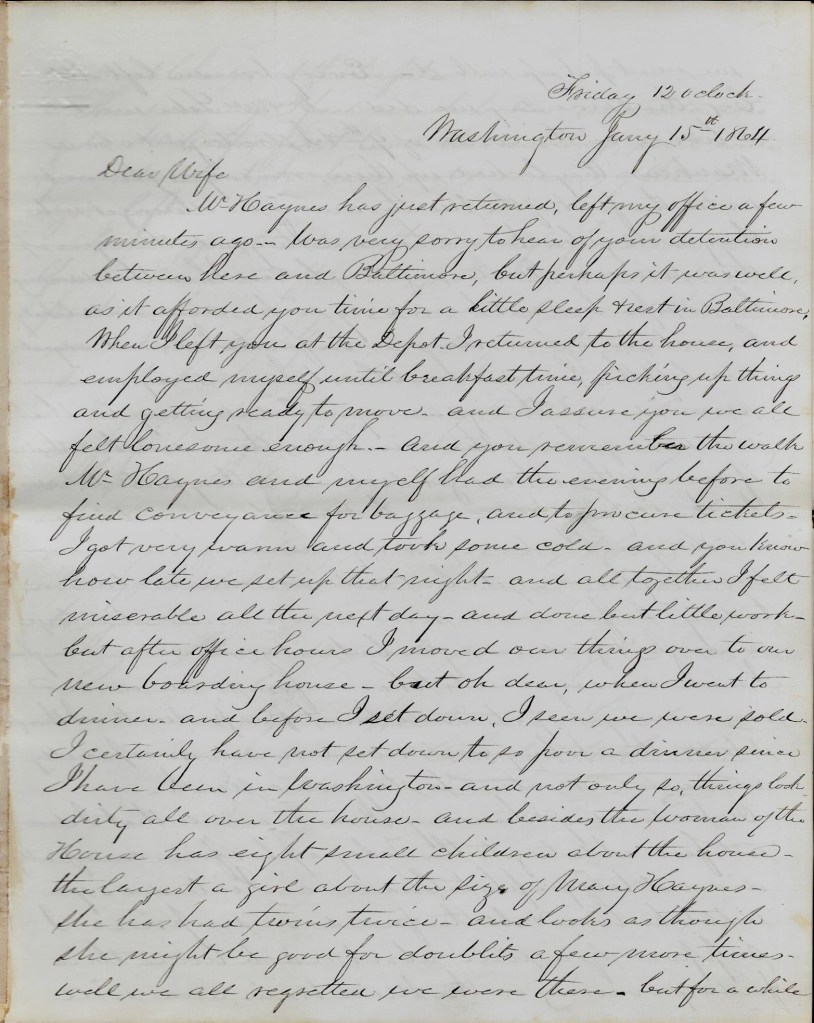 Friday 12 oclock.
Washington Jany 15th 1864
Dear Wife
Mr Haynes has just returned, left my office a few
minutes ago – Was very sorry to hear of your detention
between here and Baltimore, but perhaps it was well,
as it afforded you time for a little sleep & rest in Baltimore,
When I left you at the Depot I returned to the house, and
employed myself until breakfast time, picking up things
and getting ready to move – and I assure you we all
felt lonesome enough. – And you remember the walk
Mr Haynes and myself had the evening before to
find conveyance for baggage, and to procure tickets –
I got very warm and took some cold – and you know
how late we set up that night – and all together I felt
miserable all the next day – and done but little work –
but after office hours I moved our things over to our
new boarding house – but oh dear, when I went to
dinner – and before I set down, I seen we were sold.
I certainly have not set down to so poor a dinner since
I have been in Washington – and not only so, things look
dirty all over the house – and besides the woman of the
House has eight small children about the house –
the largest a girl about the size of Mary Haynes –
she has had twins twice – and looks as though
she might be good for doublits a few more times –
well we all regretted we were there – but for a while